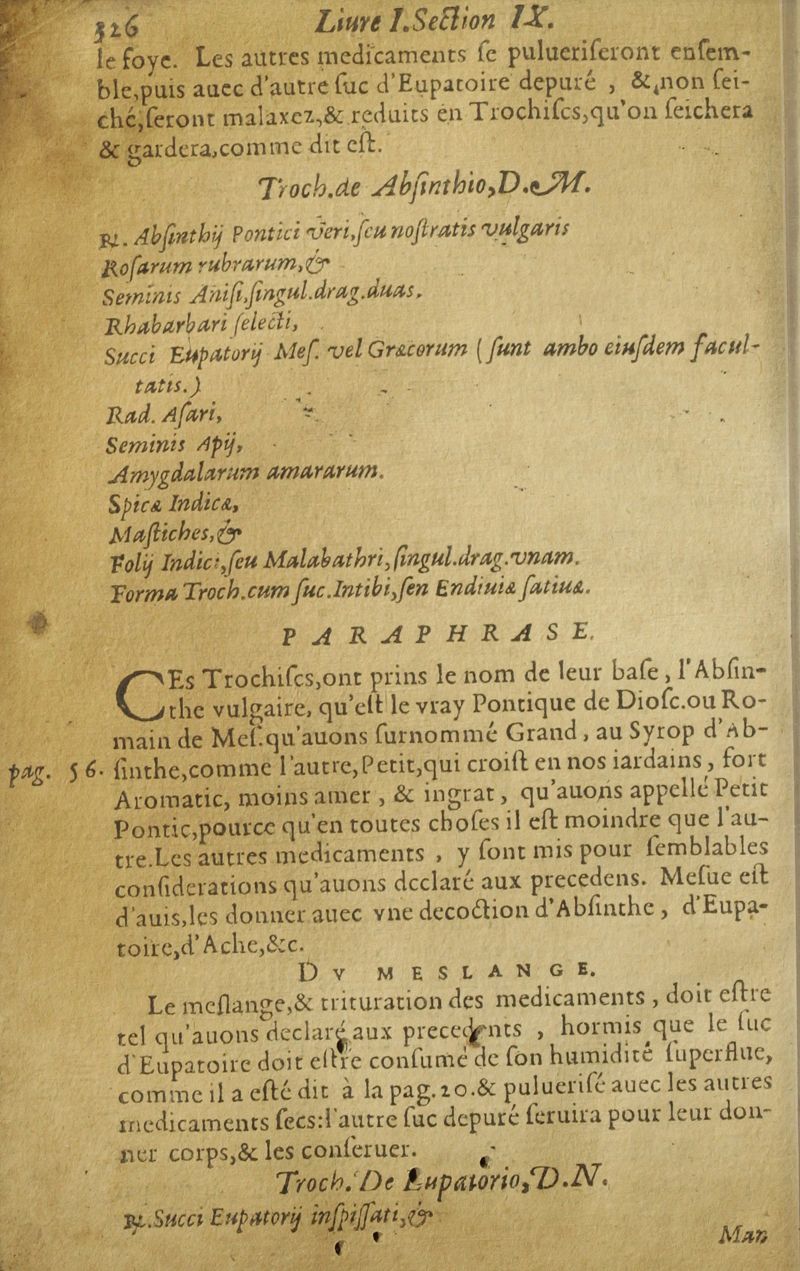 326 Liure I. Section IX.
le foye. Les autres medicaments se pulueriseront ensem-
ble,puis auec d'autre suc d'Eupatoire depuré , &,non sei-
ché,seront malaxez,& reduits en Trochiscs,qu'on seichera
& gardera,comme dit est.
Troch.de Absinthio,D.M.
℞. Absinthij Pontici veri,seu nostratis vulgaris
Rosarum rubrarum,&
Seminis Anisi,singul.drag.duas.
Rhabarbari selecti,
Succi Eupatorij Mes. vel Græcorum ( sunt ambo eiusdem facul-
tatis.)
Rad. Asari,
Seminis Apij,
Amygdalarum amararum.
Spicæ Indicæ,
Mastiches,&
Folij Indici,seu Malabathri,singul.drag.vnam.
Forma Troch.cum suc.Intibi,sen Endiuiæ satiuæ.
PARAPHRASE.
CEs Trochiscs,ont prins le nom de leur base, l'Absin-
the vulgaire, qu'est le vray Pontique de Diosc.ou Ro-
main de Mes.qu'auons surnommé Grand, au Syrop d'Ab-
pag. 56. sinthe,comme l'autre,Petit,qui croist en nos iardains, fort
Aromatic, moins amer , & ingrat, qu'auons appellé Petit
Pontic,pource qu'en toutes choses il est moindre que l'au-
tre.Les autres medicaments , y sont mis pour semblables
considerations qu'auons declaré aux precedens. Mesue est
d'auis,les donner auec vne decoction d'Absinthe, d'Eupa-
toire,d'Ache,&c.
DV MESLANGE.
Le meslange,& trituration des medicaments , doit estre
tel qu'auons declaré aux precedents , hormis que le suc
d'Eupatoire doit estre consumé de son humidité superflue,
comme il a esté dit à la pag.20.& puluerisé auec les autres
medicaments secs:l'autre suc depuré seruira pour leur don-
ner corps,& les conseruer.
Troch. De Eupatorio,D.N.
℞.Succi Eupatorij inspissati,&
Man